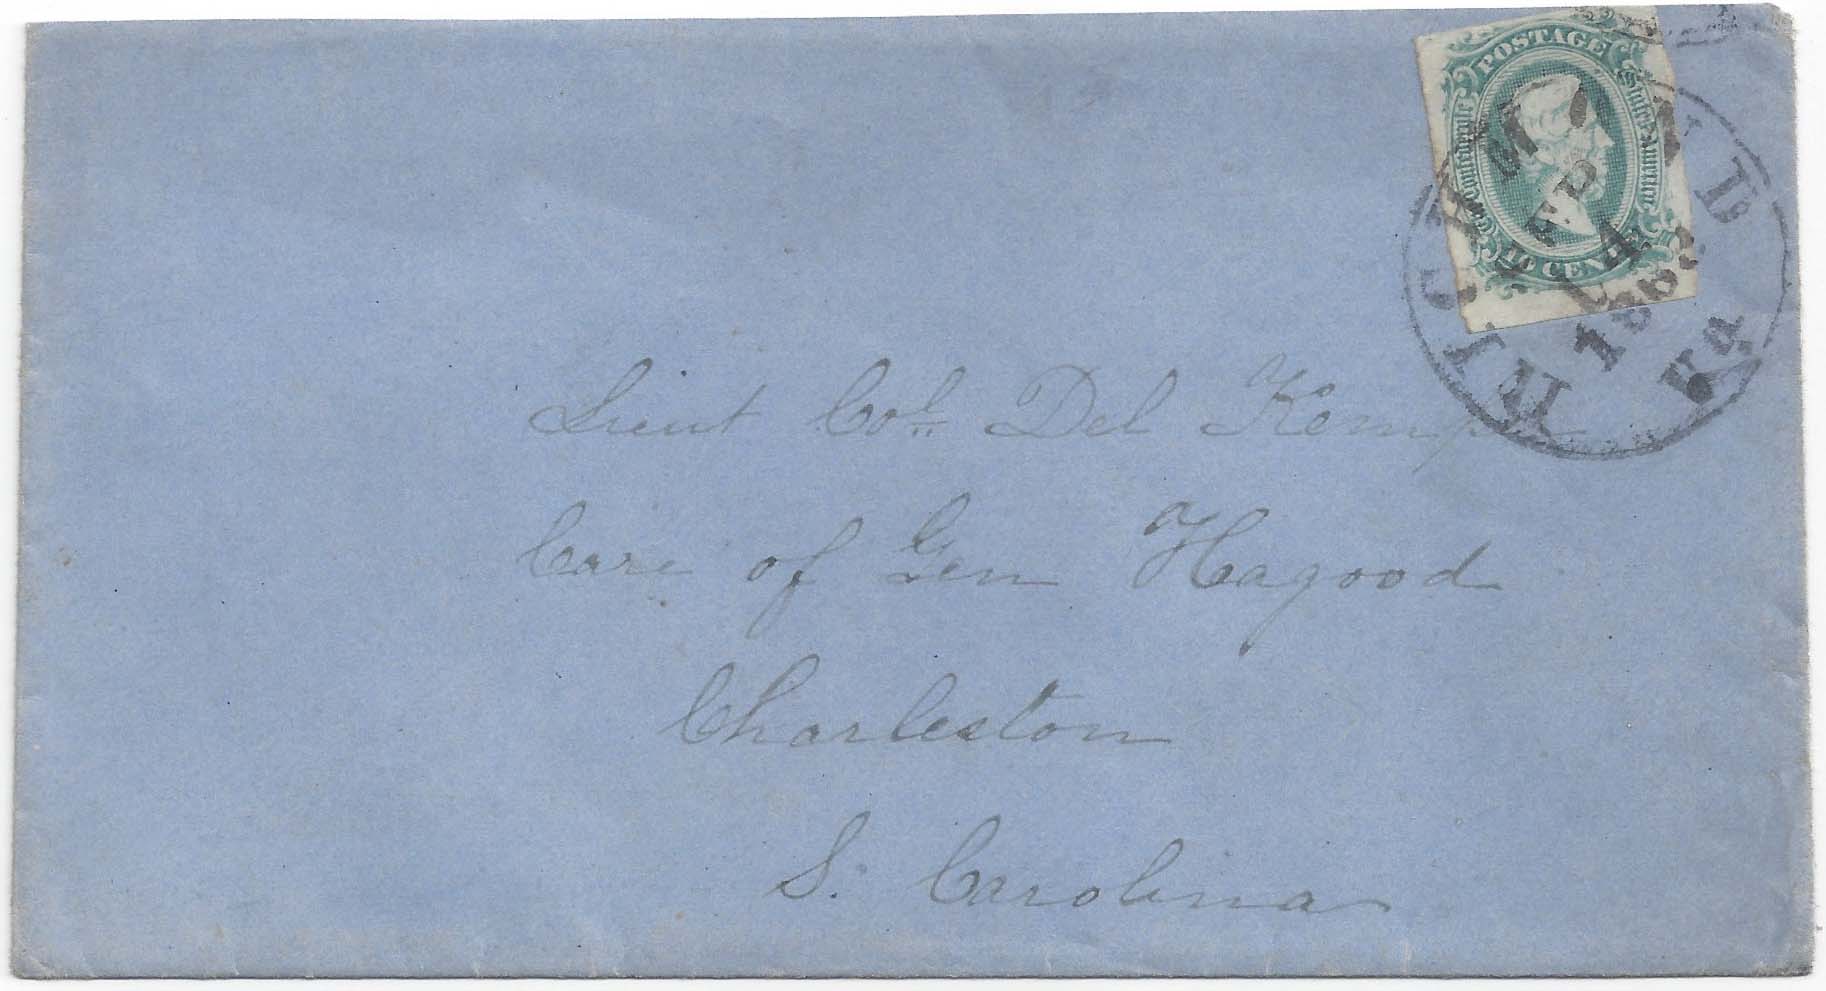 POSTAGE
Confederate States of America
10 CENTS
RICHMOND
SEP
4
186
Va
Lieut Col. Del Kemper
Care of Gen Hagood
Charleston
S. Carolina